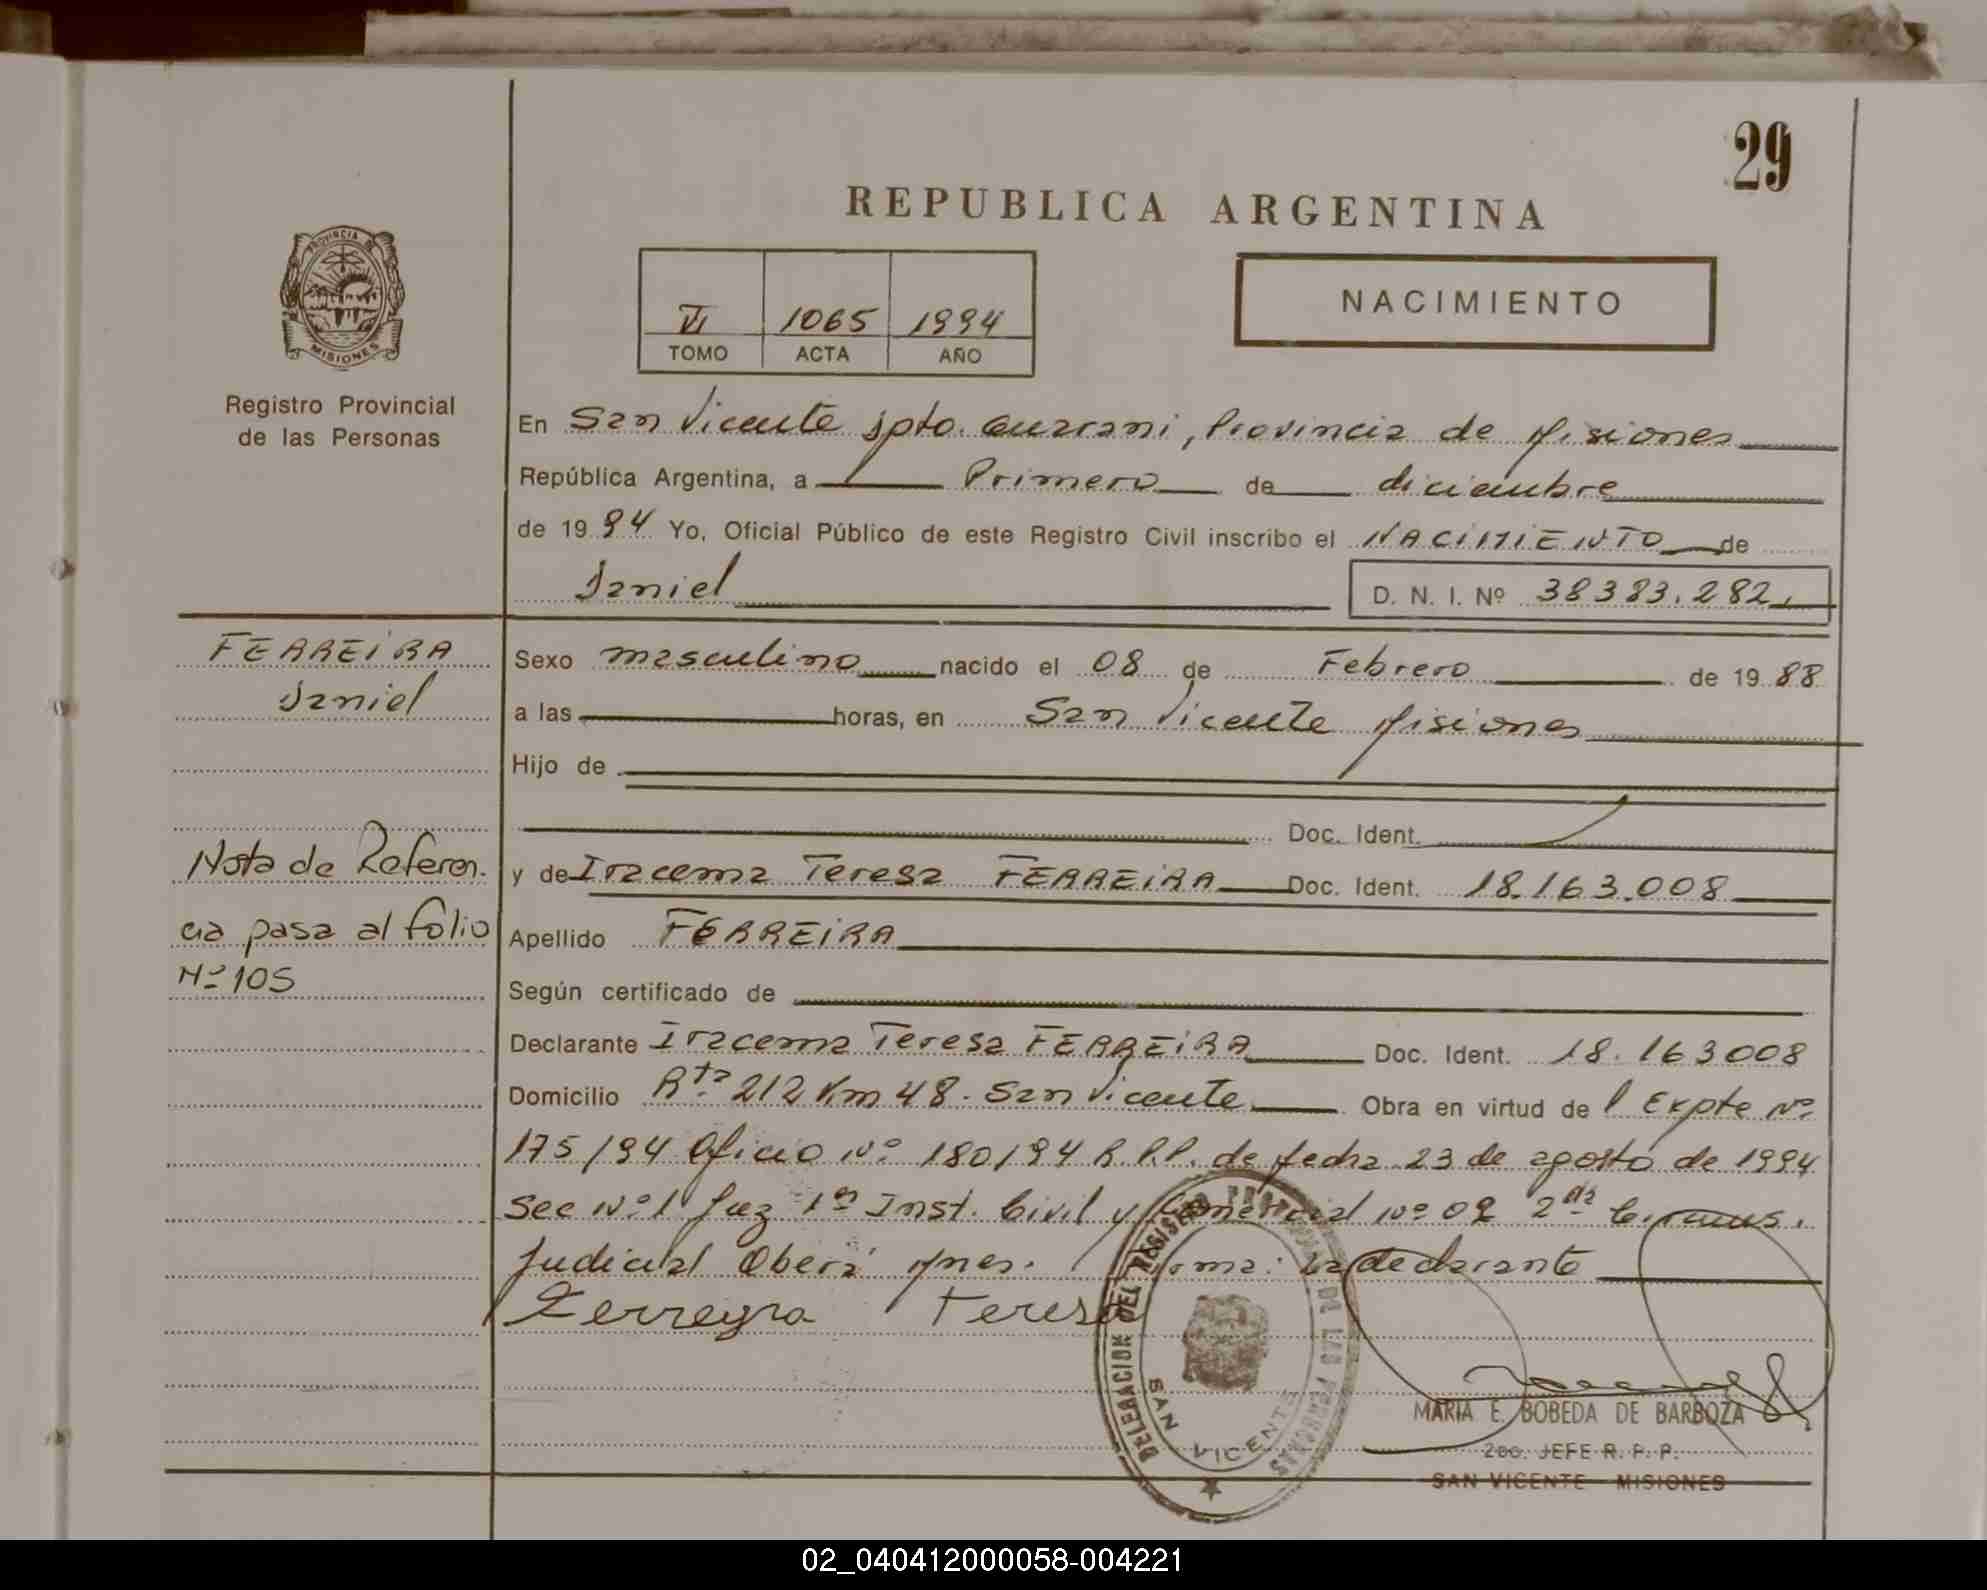 29
REPUBLICA ARGENTINA
PROVINCIA DE
MISIONES
VI 1065 1994
TOMO ACTA AÑO
NACIMIENTO
Registro Provincial
de las Personas
En San Vicente Dpto. Guarani, Provincia de Misiones
República Argentina, a Primero de diciembre
de 1994 Yo, Oficial Público de este Registro Civil inscribo el NACIMIENTO de
Daniel D. N. I. Nº 38383.282
FERREIRA
Daniel
Sexo masculino nacido el 08 de Febrero de 1988
a las horas, en San Vicente Misiones
Hijo de
Doc. Ident.
Nota de Referen.
cia pasa al folio
Nº 105
y de Iracema Teresa FERREIRA Doc. Ident. 18.163.008
Apellido FERREIRA
Según certificado de
Declarante Iracema Teresa FERREIRA Doc. Ident. 18.163008
Domicilio Rta 212 Km 48. San Vicente Obra en virtud de l Expte Nº
175/94 Oficio Nº 180/94 R.P.P. de fecha 23 de agosto de 1994
Sec Nº 1 Juz 1ª Inst. Civil y Comercial Nº 02 2da Circuns.
Judicial Oberá Mnes. Firma: La declarante
Ferreyra Teresa
DELEGACION DEL REGISTRO PROVINCIAL DE LAS PERSONAS
SAN VICENTE
MARIA E. BOBEDA DE BARBOZA
2do. JEFE R. P. P.
SAN VICENTE - MISIONES
02_040412000058-004221